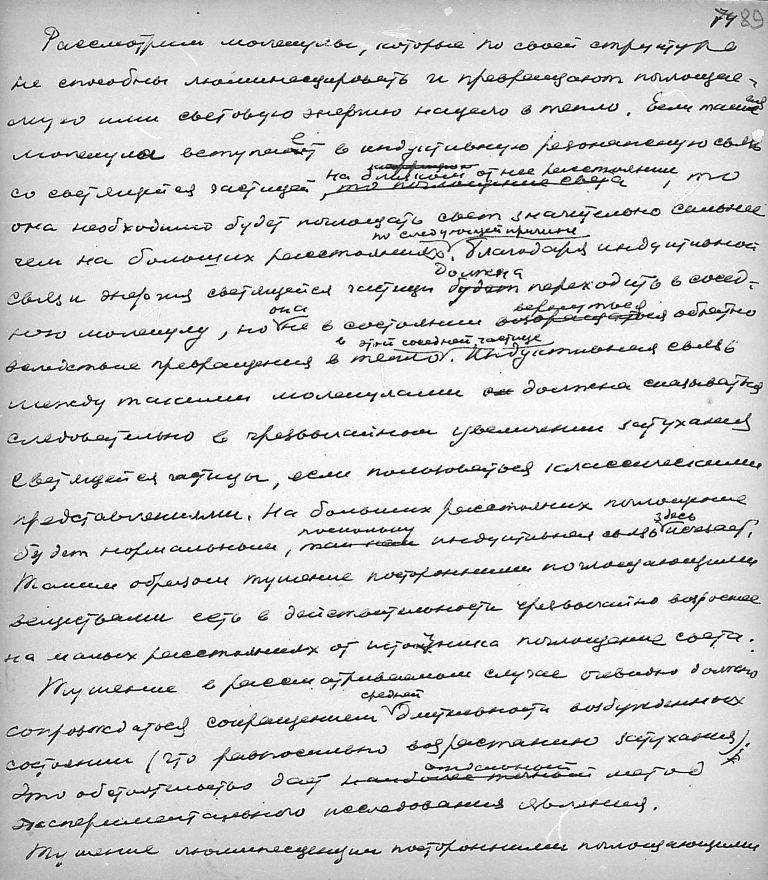 89
Рассмотрим молекулы, которые по своей структуре
не способны люминесцировать и превращают поглощае-
мую ими световую энергию нацело в тепло. Если такая
молекула вступает в индуктивную резонансную связь
со светящейся частицей, на близком от нее расстоянии, то
она необходимо будет поглощать свет значительно сильнее
чем на больших расстояниях по следующей причине. Благодаря индуктивной
связи энергия светящейся частицы должна переходить в сосед-
нюю молекулу, но она не в состоянии вернуться обратно
вследствие превращения в этой соседней частице в тепло. Индуктивная связь
между такими молекулами должна сказываться
следовательно в чрезвычайном увеличении затухания
светящейся частицы, если пользоваться классическими
представлениями. На больших расстояниях поглощение
будет нормальным, поскольку индуктивная связь здесь исчезает.
Таким образом тушение посторонними поглощающими
веществами есть в действительности чрезвычайно возросшее
на малых расстояниях от источника поглощение света.
Тушение в рассматриваемом случае очевидно должно
сопровождаться сокращением средней длительности возбужденных
состояний (что равносильно возрастанию затухания).
Это обстоятельство дает метод
экспериментального исследования явления.
Тушение люминесценции посторонними поглощающими